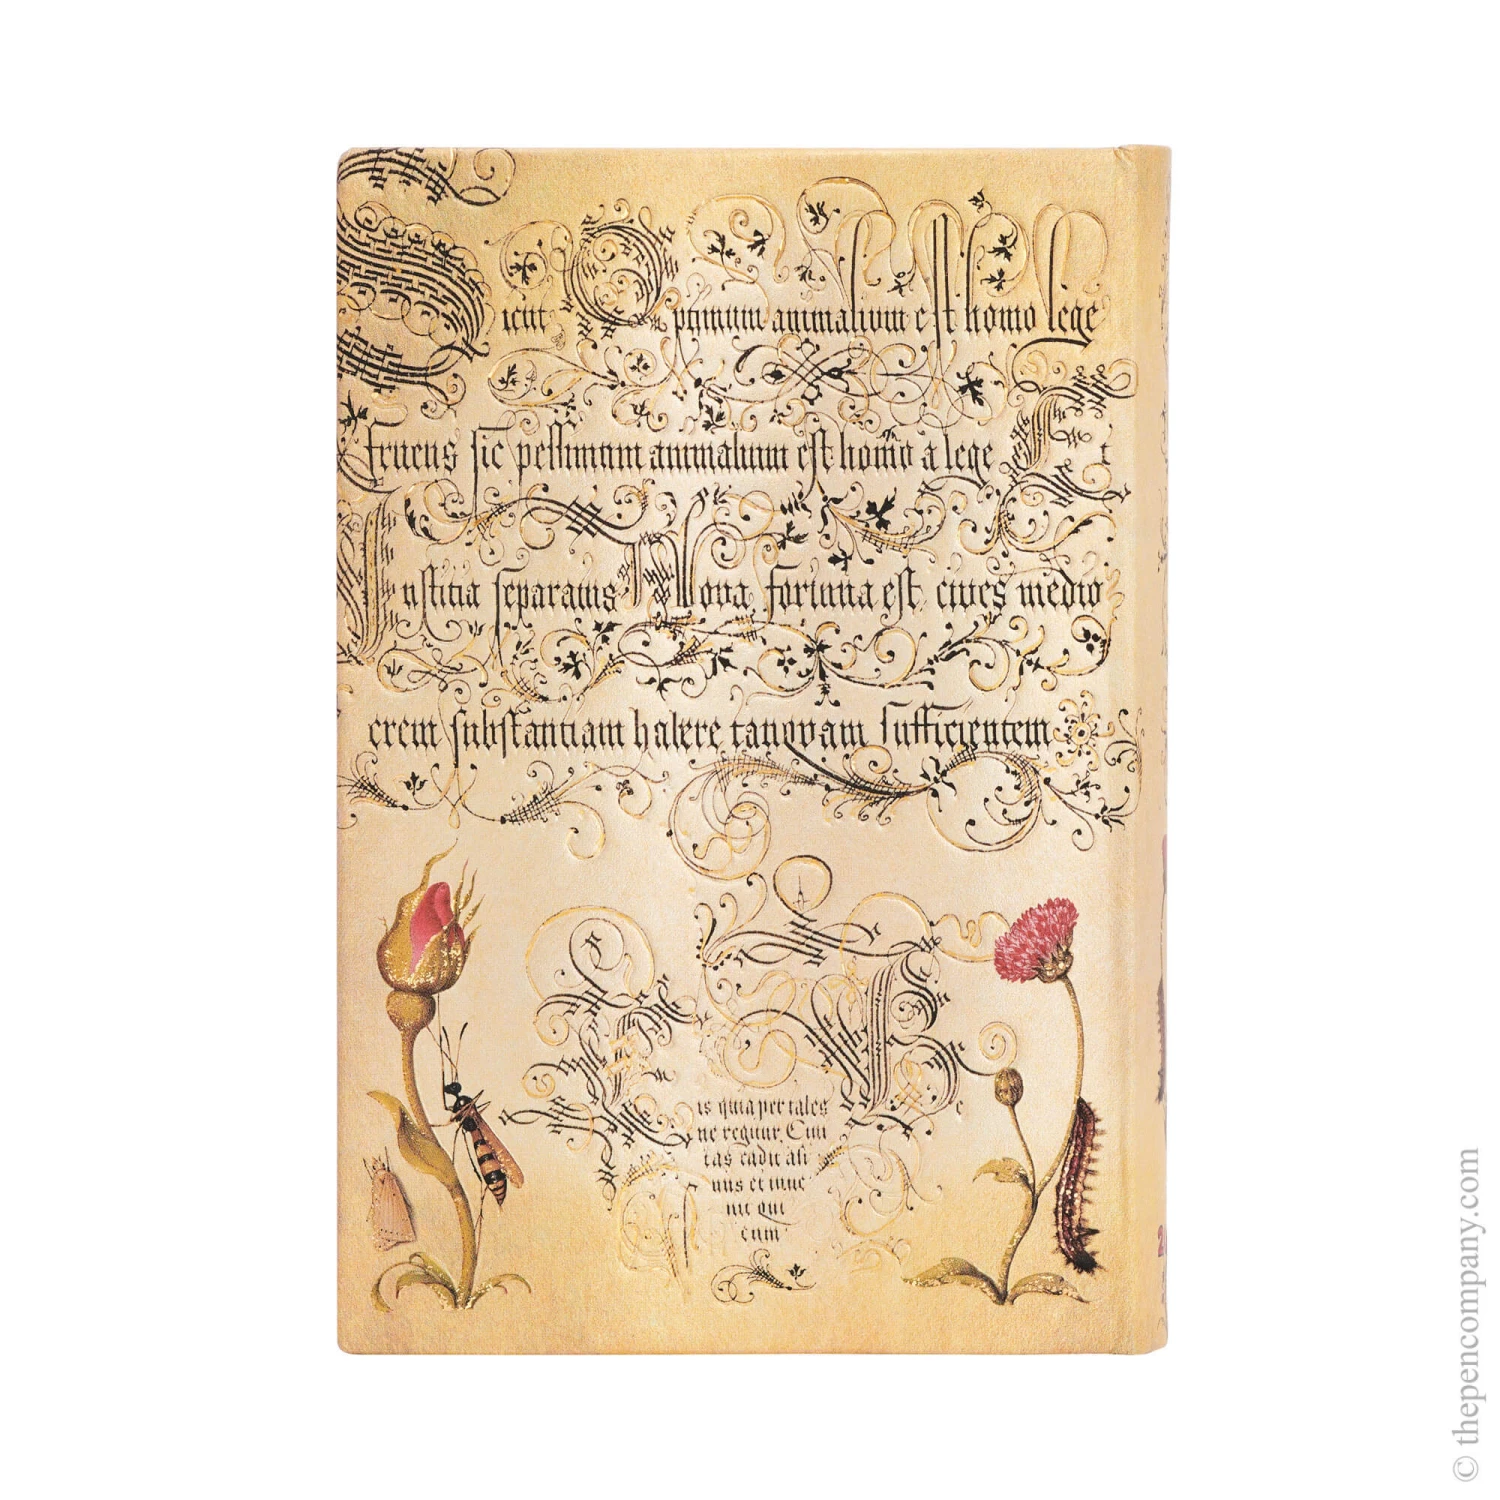 Sicut Optimum animalium est homo lege
fruens sic pessimum animalium est homo a lege Et
Iustitia separatus Bona fortuna est, cives medio
crem substantiam habere tanquam sufficientem
is quia per tales
ne reguntur. Civi
tas
cum
© thepencompany.com